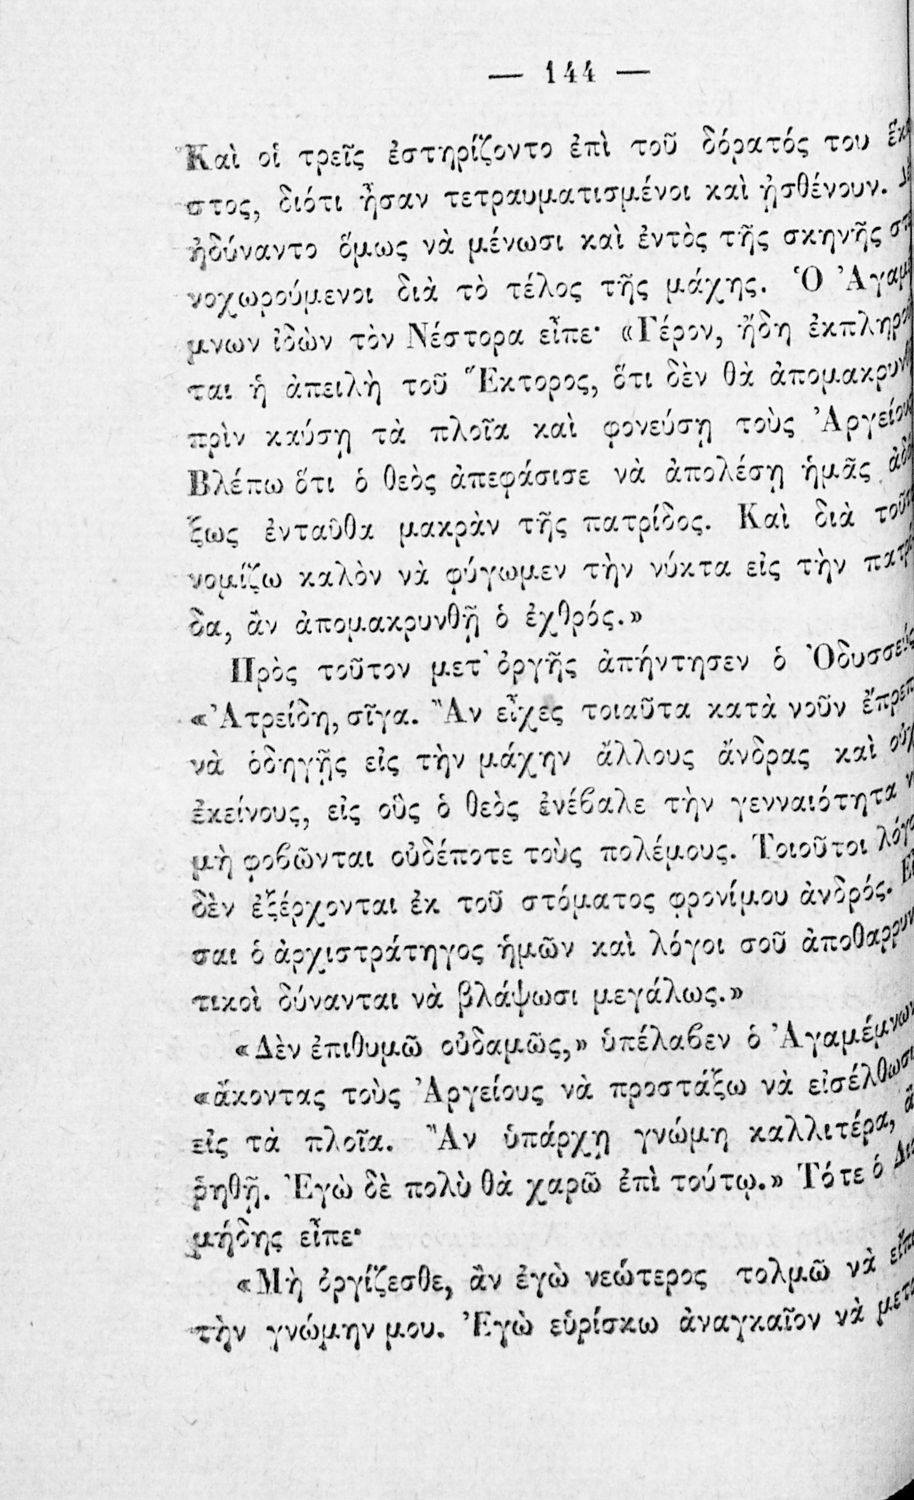 — 144 —
Καὶ οἱ τρεῖς ἐστηρίζοντο ἐπὶ τοῦ δόρατός του ἕκα
στος, διότι ἦσαν τετραυματισμένοι καὶ ἠσθένουν. Δὲ
ἠδύναντο ὅμως νὰ μένωσι καὶ ἐντὸς τῆς σκηνῆς στε
νοχωρούμενοι διὰ τὸ τέλος τῆς μάχης. Ὁ Ἀγαμέ
μνων ἰδὼν τὸν Νέστορα εἶπε· «Γέρον, ἤδη ἐκπληροῦ
ται ἡ ἀπειλὴ τοῦ Ἕκτορος, ὅτι δὲν θὰ ἀπομακρυνθῇ
πρὶν καύσῃ τὰ πλοῖα καὶ φονεύσῃ τοὺς Ἀργείους
Βλέπω ὅτι ὁ θεὸς ἀπεφάσισε νὰ ἀπολέσῃ ἡμᾶς ἀδό
ξως ἐνταῦθα μακρὰν τῆς πατρίδος. Καὶ διὰ τοῦτο
νομίζω καλὸν νὰ φύγωμεν τὴν νύκτα εἰς τὴν πατρί
δα, ἂν ἀπομακρυνθῇ ὁ ἐχθρός.»
Πρὸς τοῦτον μετ᾽ ὀργῆς ἀπήντησεν ὁ Ὀδυσσεύς
«Ἀτρείδη, σῖγα. Ἂν εἶχες τοιαῦτα κατὰ νοῦν ἔπρεπ
νὰ ὁδηγῇς εἰς τὴν μάχην ἄλλους ἄνδρας καὶ οὐχ
ἐκείνους, εἰς οὓς ὁ θεὸς ἐνέβαλε τὴν γενναιότητα ν
μὴ φοβῶνται οὐδέποτε τοὺς πολέμους. Τοιοῦτοι λόγο
δὲν ἐξέρχονται ἐκ τοῦ στόματος φρονίμου ἀνδρός. Εἶ
σαι ὁ ἀρχιστράτηγος ἡμῶν καὶ λόγοι σοῦ ἀποθαρρυν
τικοὶ δύνανται νὰ βλάψωσι μεγάλως.»
«Δὲν ἐπιθυμῶ οὐδαμῶς,» ὑπέλαβεν ὁ Ἀγαμέμνων
«ἄκοντας τοὺς Ἀργείους νὰ προστάξω νὰ εἰσέλθωσι
εἰς τὰ πλοῖα. Ἂν ὑπάρχῃ γνώμη καλλιτέρα, ἂ
ῥηθῇ. Ἐγὼ δὲ πολὺ θὰ χαρῶ ἐπὶ τούτῳ.» Τότε ὁ Διο
μήδης εἶπε·
«Μὴ ὀργίζεσθε, ἂν ἐγὼ νεώτερος τολμῶ νὰ εἴπω
τὴν γνώμην μου. Ἐγὼ εὑρίσκω ἀναγκαῖον νὰ μετα